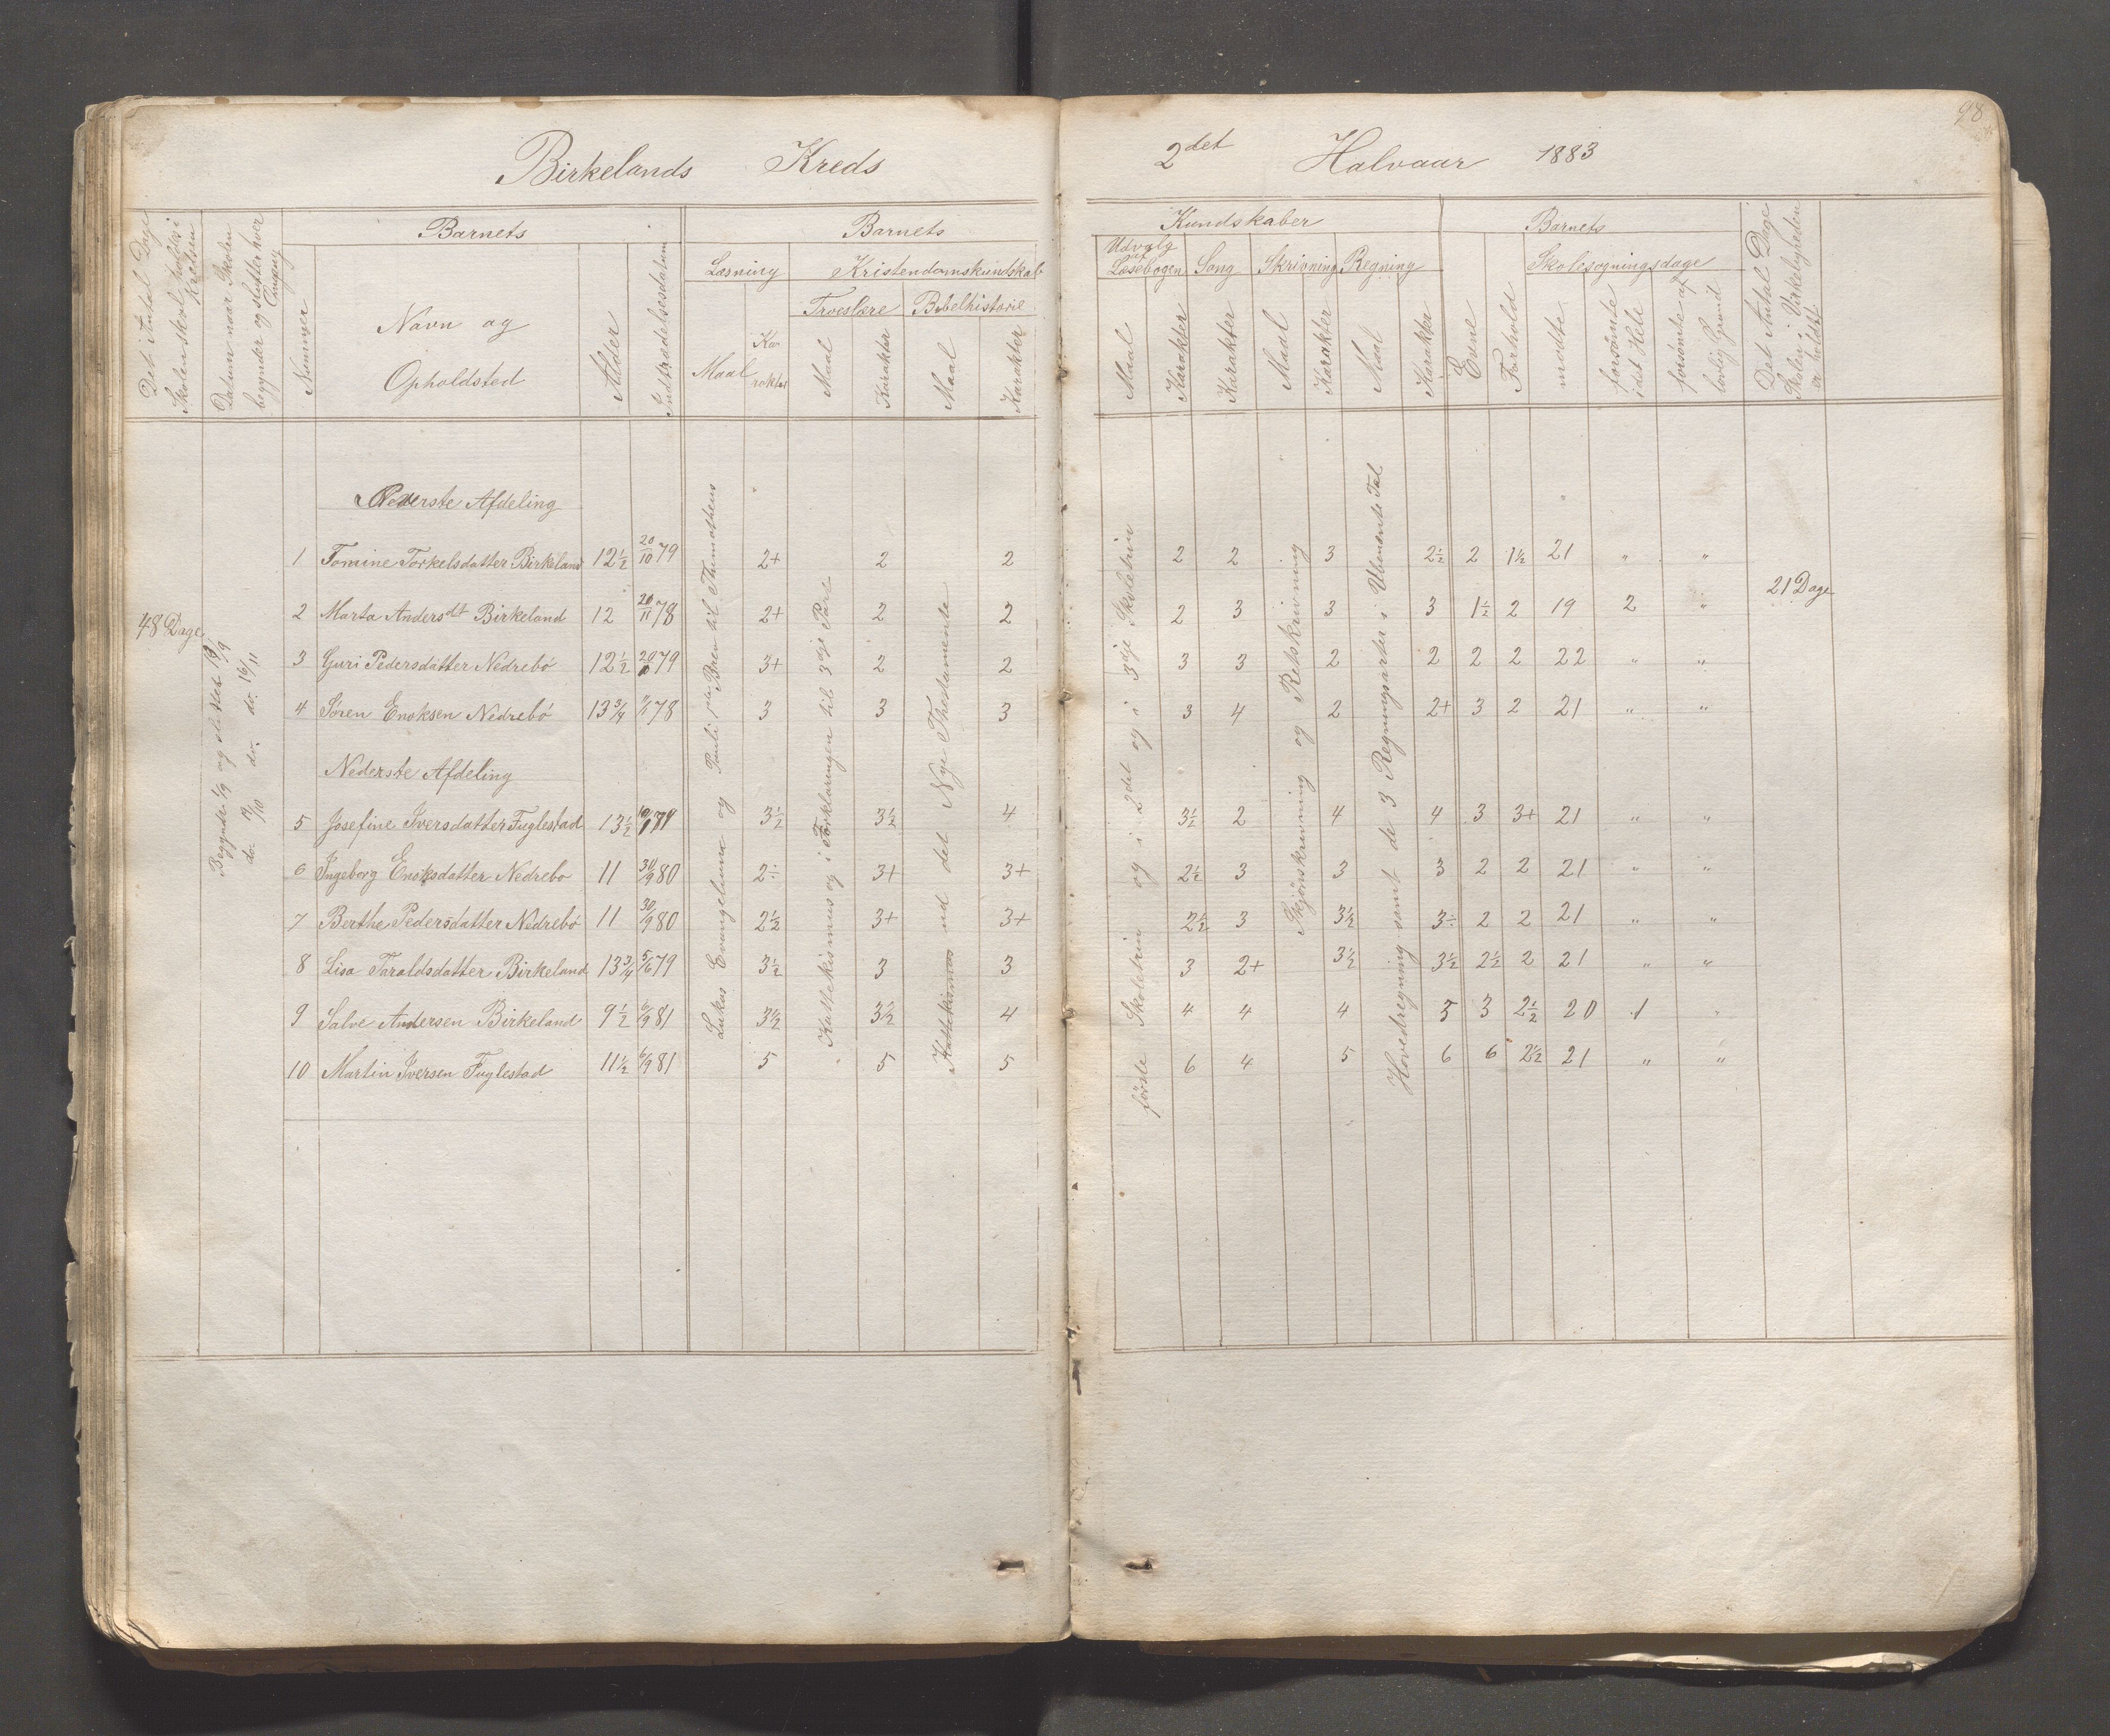 98
Birkelands Kreds
2det Halvaar 1883
Det Antal Dage Skolen skal holdes i Kredsen
Datum naar Skolen begynder og slutter hver Omgang
Barnets
Nummer
Navn og Opholdsted
Alder
Indtrædelsesdatum
Barnets
Læsning
Maal
Karakter
Kristendomskundskab
Troeslære
Maal
Karakter
Bibelhistorie
Maal
Karakter
Kundskaber
Udvalg af Læsebogen
Maal
Karakter
Sang
Karakter
Skrivning
Maal
Karakter
Regning
Maal
Karakter
Barnets
Evne
Forhold
Skolesøgningsdage
mødte
forsömte i det Hele
forsömte af lovlig Grund
Det Antal Dage Skolen i Virkeligheden er holdt
48 Dage
Begyndte 1/9 og sluttet 19/9
do. 17/10 do. do. 16/11
Lukas Evangelium og Pauli Brev til Thimotheus
Kattekismus og i Forklaringen til 3dje Part
Kattekismus ud det Nye Thestamente
første Skoletrin og i 2det og i 3dje Skoletrin
Skjønskrivning og Retskrivning
Hovedregning samt de 3 Regningsarter i Ubenevnte Tal
Øverste Afdeling
1 Tomine Torkelsdatter Birkeland 12 1/2 20/10 79 2+ 2 2 2 2 3 2 1/2 2 1 1/2 21 " "
21 Dage
2 Marta Andersdt Birkeland 12 20/11 78 2+ 2 2 2 3 3 3 1 1/2 2 19 2 "
3 Guri Pedersdatter Nedrebö 12 1/2 20/10 79 3+ 2 2 3 3 2 2 2 2 22 " "
4 Sören Enoksen Nedrebö 13 3/4 11/1 78 3 3 3 3 4 2 2+ 3 2 21 " "
Nederste Afdeling
5 Josefine Iversdatter Fuglestad 13 1/2 10/1 79 3 1/2 3 1/2 4 3 1/2 2 4 4 3 3+ 21 " "
6 Ingeborg Enoksdatter Nedrebo 11 30/9 80 2÷ 3+ 3+ 2 1/2 3 3 3 2 2 21 " "
7 Berthe Pedersdatter Nedrebö 11 30/9 80 2 1/2 3+ 3+ 2 1/2 3 3 1/2 3÷ 2 2 21 " "
8 Lisa Taraldsdatter Birkeland 13 3/4 5/6 79 3 1/2 3 3 3 2+ 3 1/2 3 1/2 2 1/2 2 21 " "
9 Salve Andersen Birkeland 9 1/2 6/9 81 3 1/2 3 1/2 4 4 4 4 5 3 2 1/2 20 1 "
10 Martin Iversen Fuglestad 11 1/2 6/9 81 5 5 5 6 4 5 6 6 2 1/2 21 " "